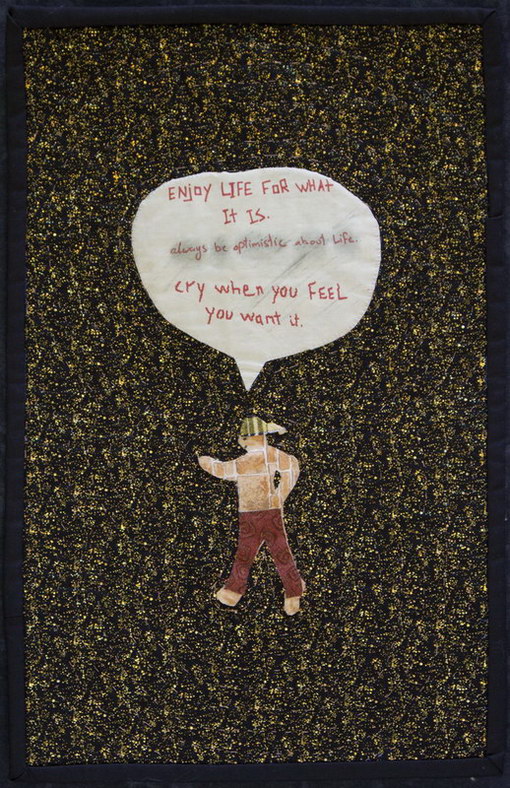 ENJOY LIFE FOR WHAT
IT IS.
always be optimistic about Life.
cry when you FEEL
you want it.